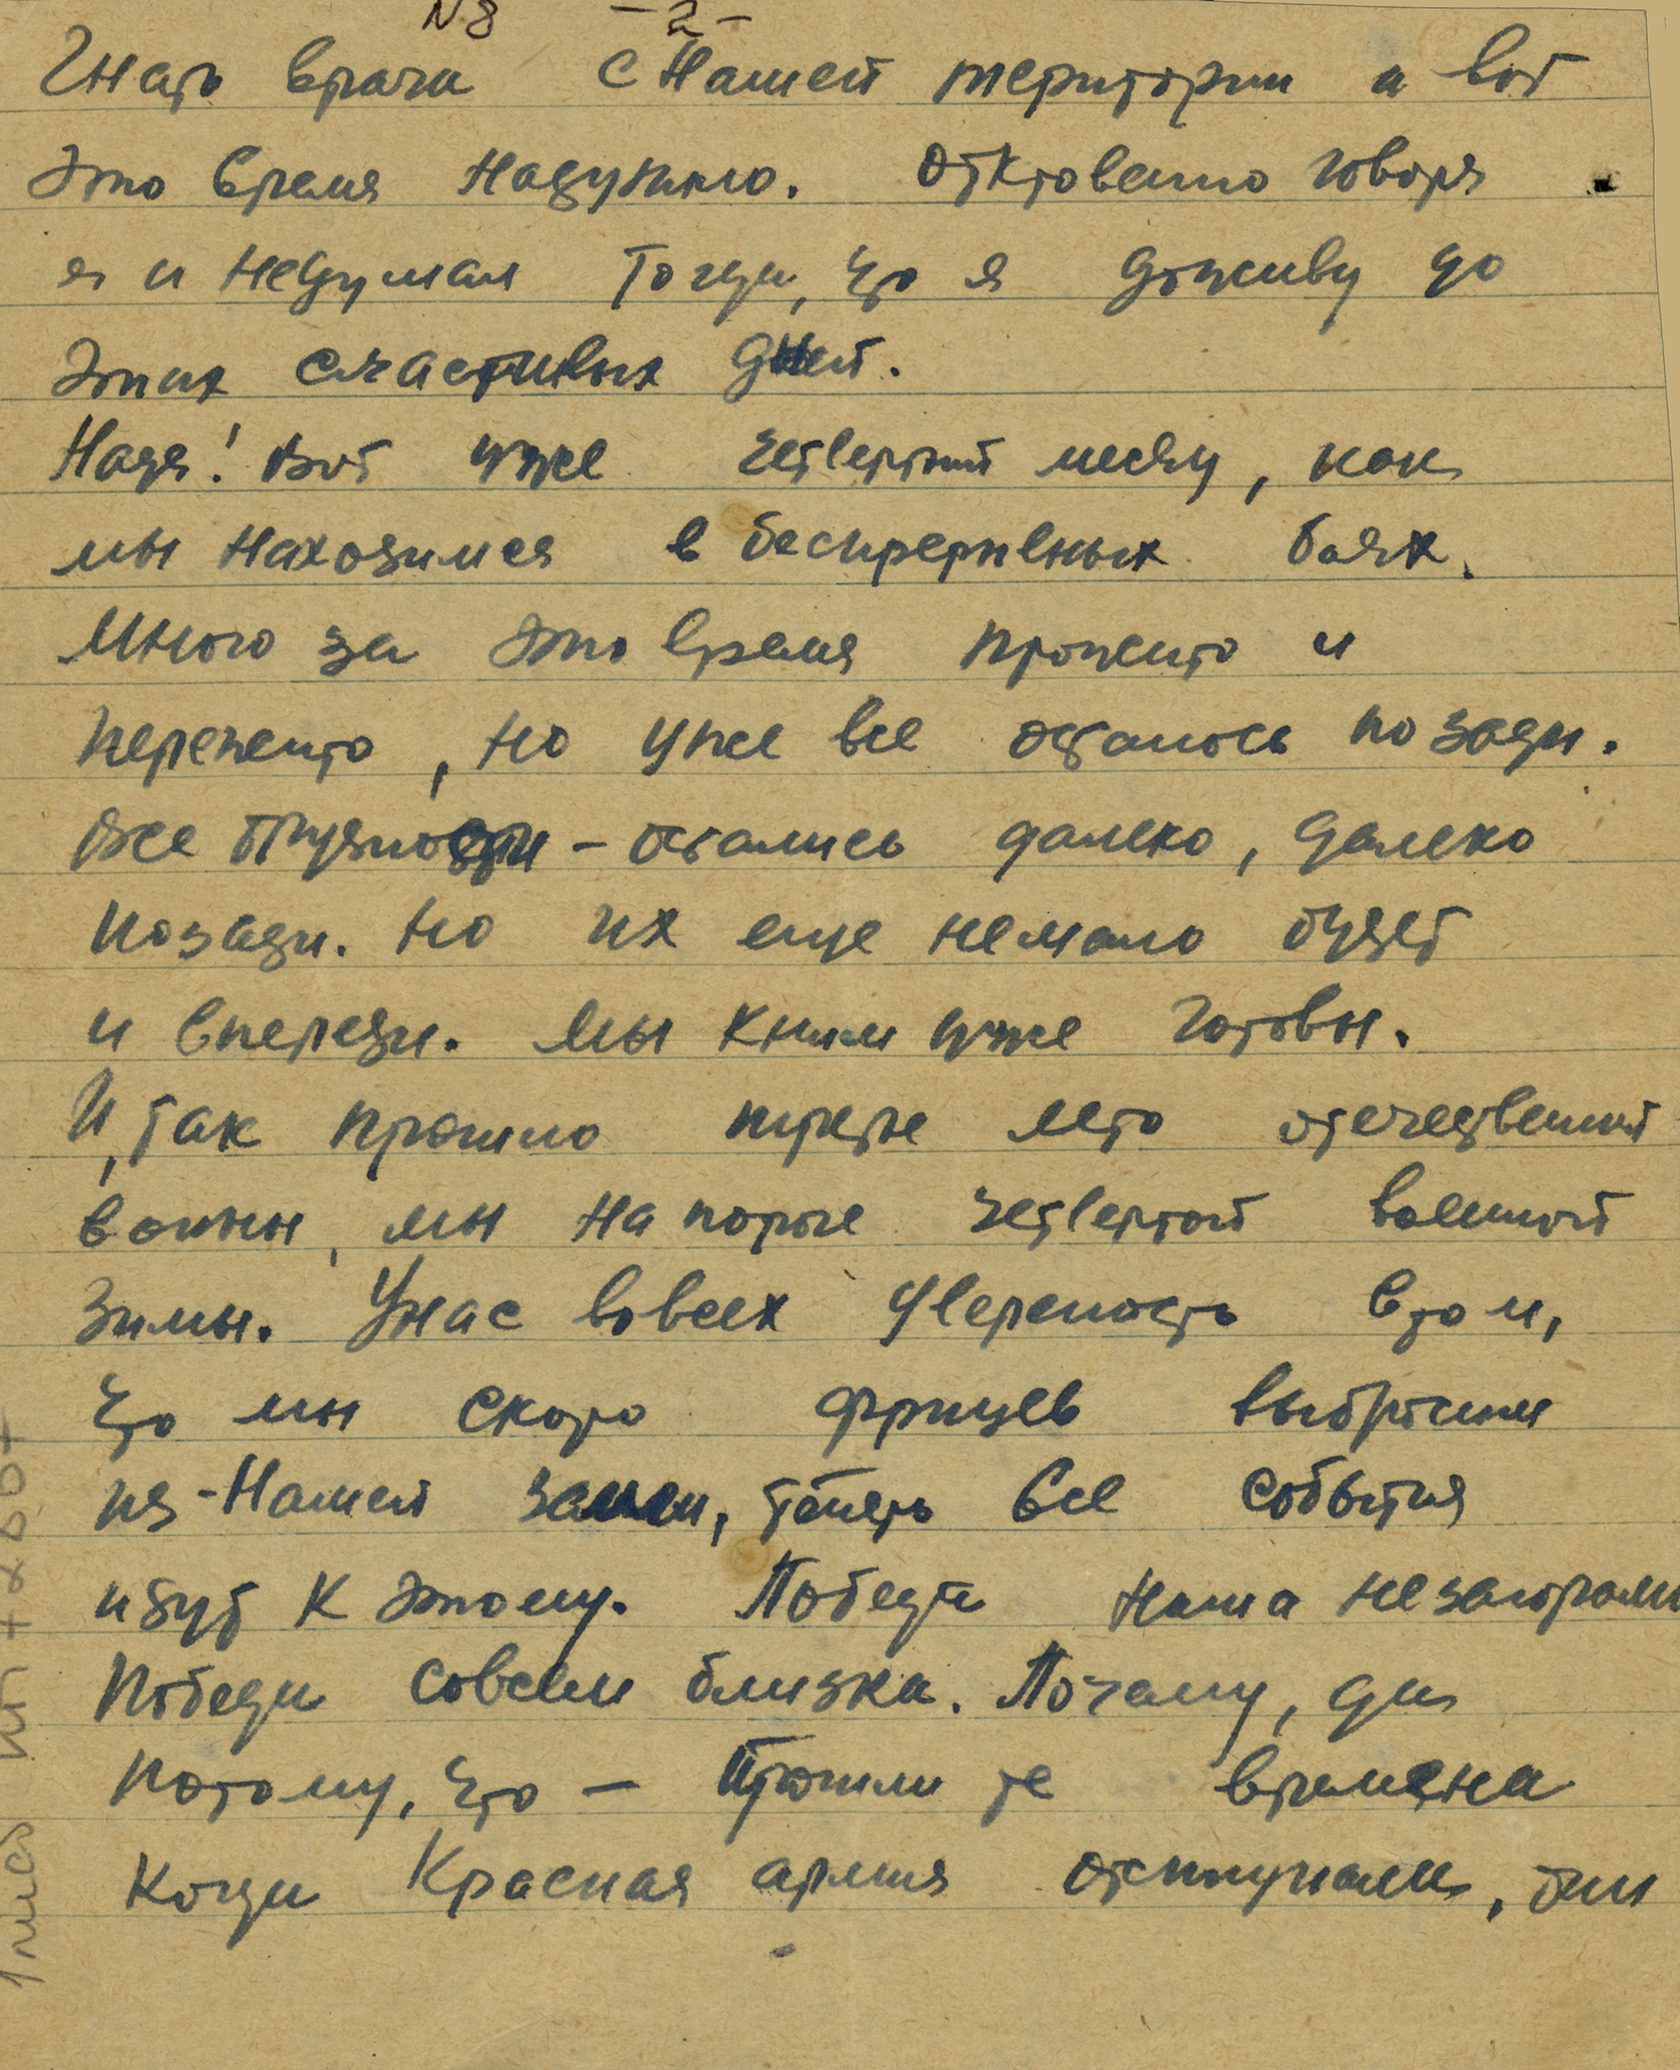 N 8 -2-
Гнать врага с Нашей територии и вот
это время наступило. Откровенно говоря
я и недумал тогда, что я доживу до
этих счастливых дней.
Надя! Вот уже четвертый месяц, как
мы находимся в беспрерывных боях.
Много за это время прожито и
пережито, но уже все осталось по зади.
Все трудности - остались далеко, далеко
позади. Но их еще немало будет
и впереди. Мы к ним уже готовы.
И, так прошло третье лето отечественной
войны, мы на пороге четвертой военной
зимы. У нас во всех увереность в том,
что мы скоро фрицев выбросим
из-Нашей земли, теперь все события
идут к этому. Победа наша не за горами
Победа совсем близка. Почему, да
потому, что - Прошли те времена
Когда Красная армия отступала, они